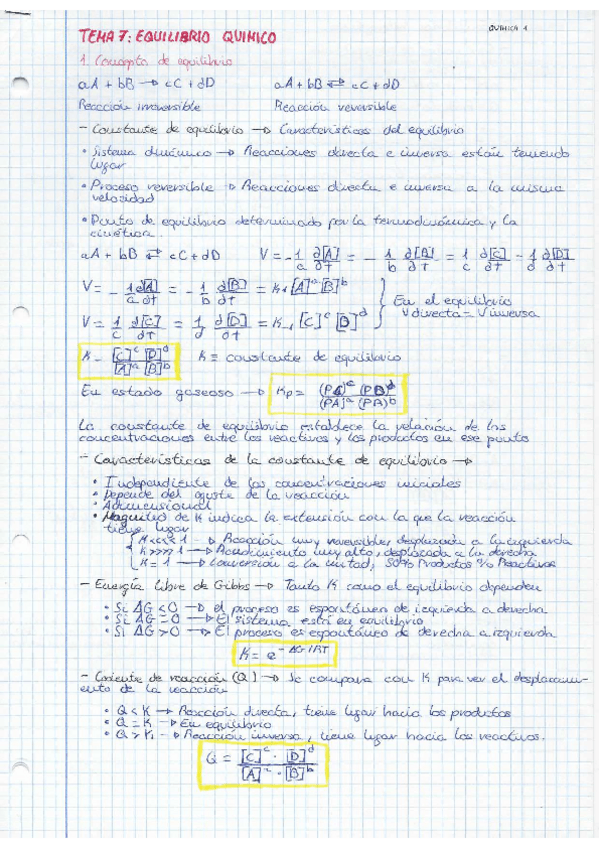 QUÍMICA 1
TEMA 7: EQUILIBRIO QUÍMICO
1. Concepto de equilibrio
aA + bB → cC + dD    aA + bB ⇌ cC + dD
Reacción irreversible    Reacción reversible
- Constante de equilibrio → Características del equilibrio
• Sistema dinámico → Reacciones directa e inversa están teniendo
lugar
• Proceso reversible → Reacciones directa e inversa a la misma
velocidad
• Punto de equilibrio determinado por la termodinámica y la
cinética.
aA + bB ⇌ cC + dD    V = - 1/a ∂[A]/∂t = - 1/b ∂[B]/∂t = 1/c ∂[C]/∂t = 1/d ∂[D]/∂t
V = - 1/a ∂[A]/∂t = - 1/b ∂[B]/∂t = K₁[A]^a [B]^b
En el equilibrio
V directa = V inversa
V = 1/c ∂[C]/∂t = 1/d ∂[D]/∂t = K₋₁ [C]^c [D]^d
K = [C]^c [D]^d / [A]^a [B]^b    K ≡ constante de equilibrio
En estado gaseoso → Kp = (PC)^c (PD)^d / (PA)^a (PA)^b
La constante de equilibrio establece la relación de las
concentraciones entre los reactivos y los productos en ese punto
- Características de la constante de equilibrio →
• Independiente de las concentraciones iniciales
• Depende del ajuste de la reacción
• Adimensional
• Magnitud de K indica la extensión con la que la reacción
tiene lugar
K<<<< 1 → Reacción muy reversible, desplazada a la izquierda
K >>>> 1 → Rendimiento muy alto, desplazada a la derecha
K = 1 → Conversión a la unidad, 50% Productos % Reactivos
- Energía libre de Gibbs → Tanto K como el equilibrio dependen
• Si ΔG < 0 → el proceso es espontáneo de izquierda a derecha
• Si ΔG = 0 → El sistema está en equilibrio
• Si ΔG > 0 → El proceso es espontáneo de derecha a izquierda
K = e^-ΔG/RT
- Cociente de reacción (Q) → Se compara con K para ver el desplazami-
ento de la reacción
• Q < K → Reacción directa, tiene lugar hacia los productos
• Q = K → En equilibrio
• Q > K → Reacción inversa, tiene lugar hacia los reactivos.
Q = [C]^c · [D]^d / [A]^a · [B]^b